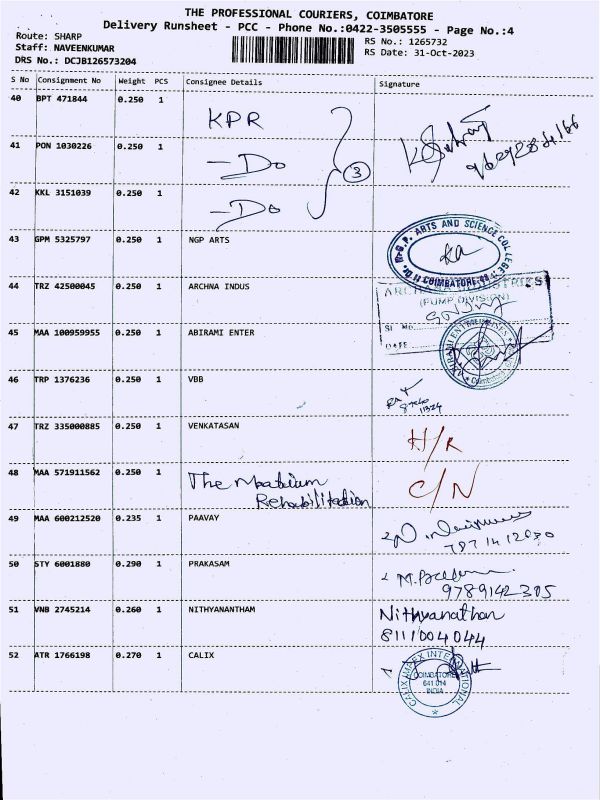 THE PROFESSIONAL COURIERS, COIMBATORE
Delivery Runsheet - PCC - Phone No.:0422-3505555 - Page No.:4
Route: SHARP
RS No.: 1265732
Staff: NAVEENKUMAR
RS Date: 31-Oct-2023
DRS No.: DCJB126573204
S No Consignment No Weight PCS Consignee Details Signature
40 BPT 471844 0.250 1 KPR
41 PON 1030226 0.250 1 -Do
3
42 KKL 3151039 0.250 1 -Do
43 GPM 5325797 0.250 1 NGP ARTS
Dr. N.G.P. ARTS AND SCIENCE COLLEGE
COIMBATORE
44 TRZ 42500045 0.250 1 ARCHNA INDUS
(PUMP DIVISION)
45 MAA 100959955 0.250 1 ABIRAMI ENTER
DATE
46 TRP 1376236 0.250 1 VBB
47 TRZ 335000885 0.250 1 VENKATASAN H/R
48 MAA 571911562 0.250 1 The C/N
Rehabilitation
49 MAA 600212520 0.235 1 PAAVAY
50 STY 6001880 0.290 1 PRAKASAM
9789142305
51 VNB 2745214 0.260 1 NITHYANANTHAM Nithyanathan
8111004044
52 ATR 1766198 0.270 1 CALIX
CALIX IMAEX INTERNATIONAL
COIMBATORE
641 014
INDIA